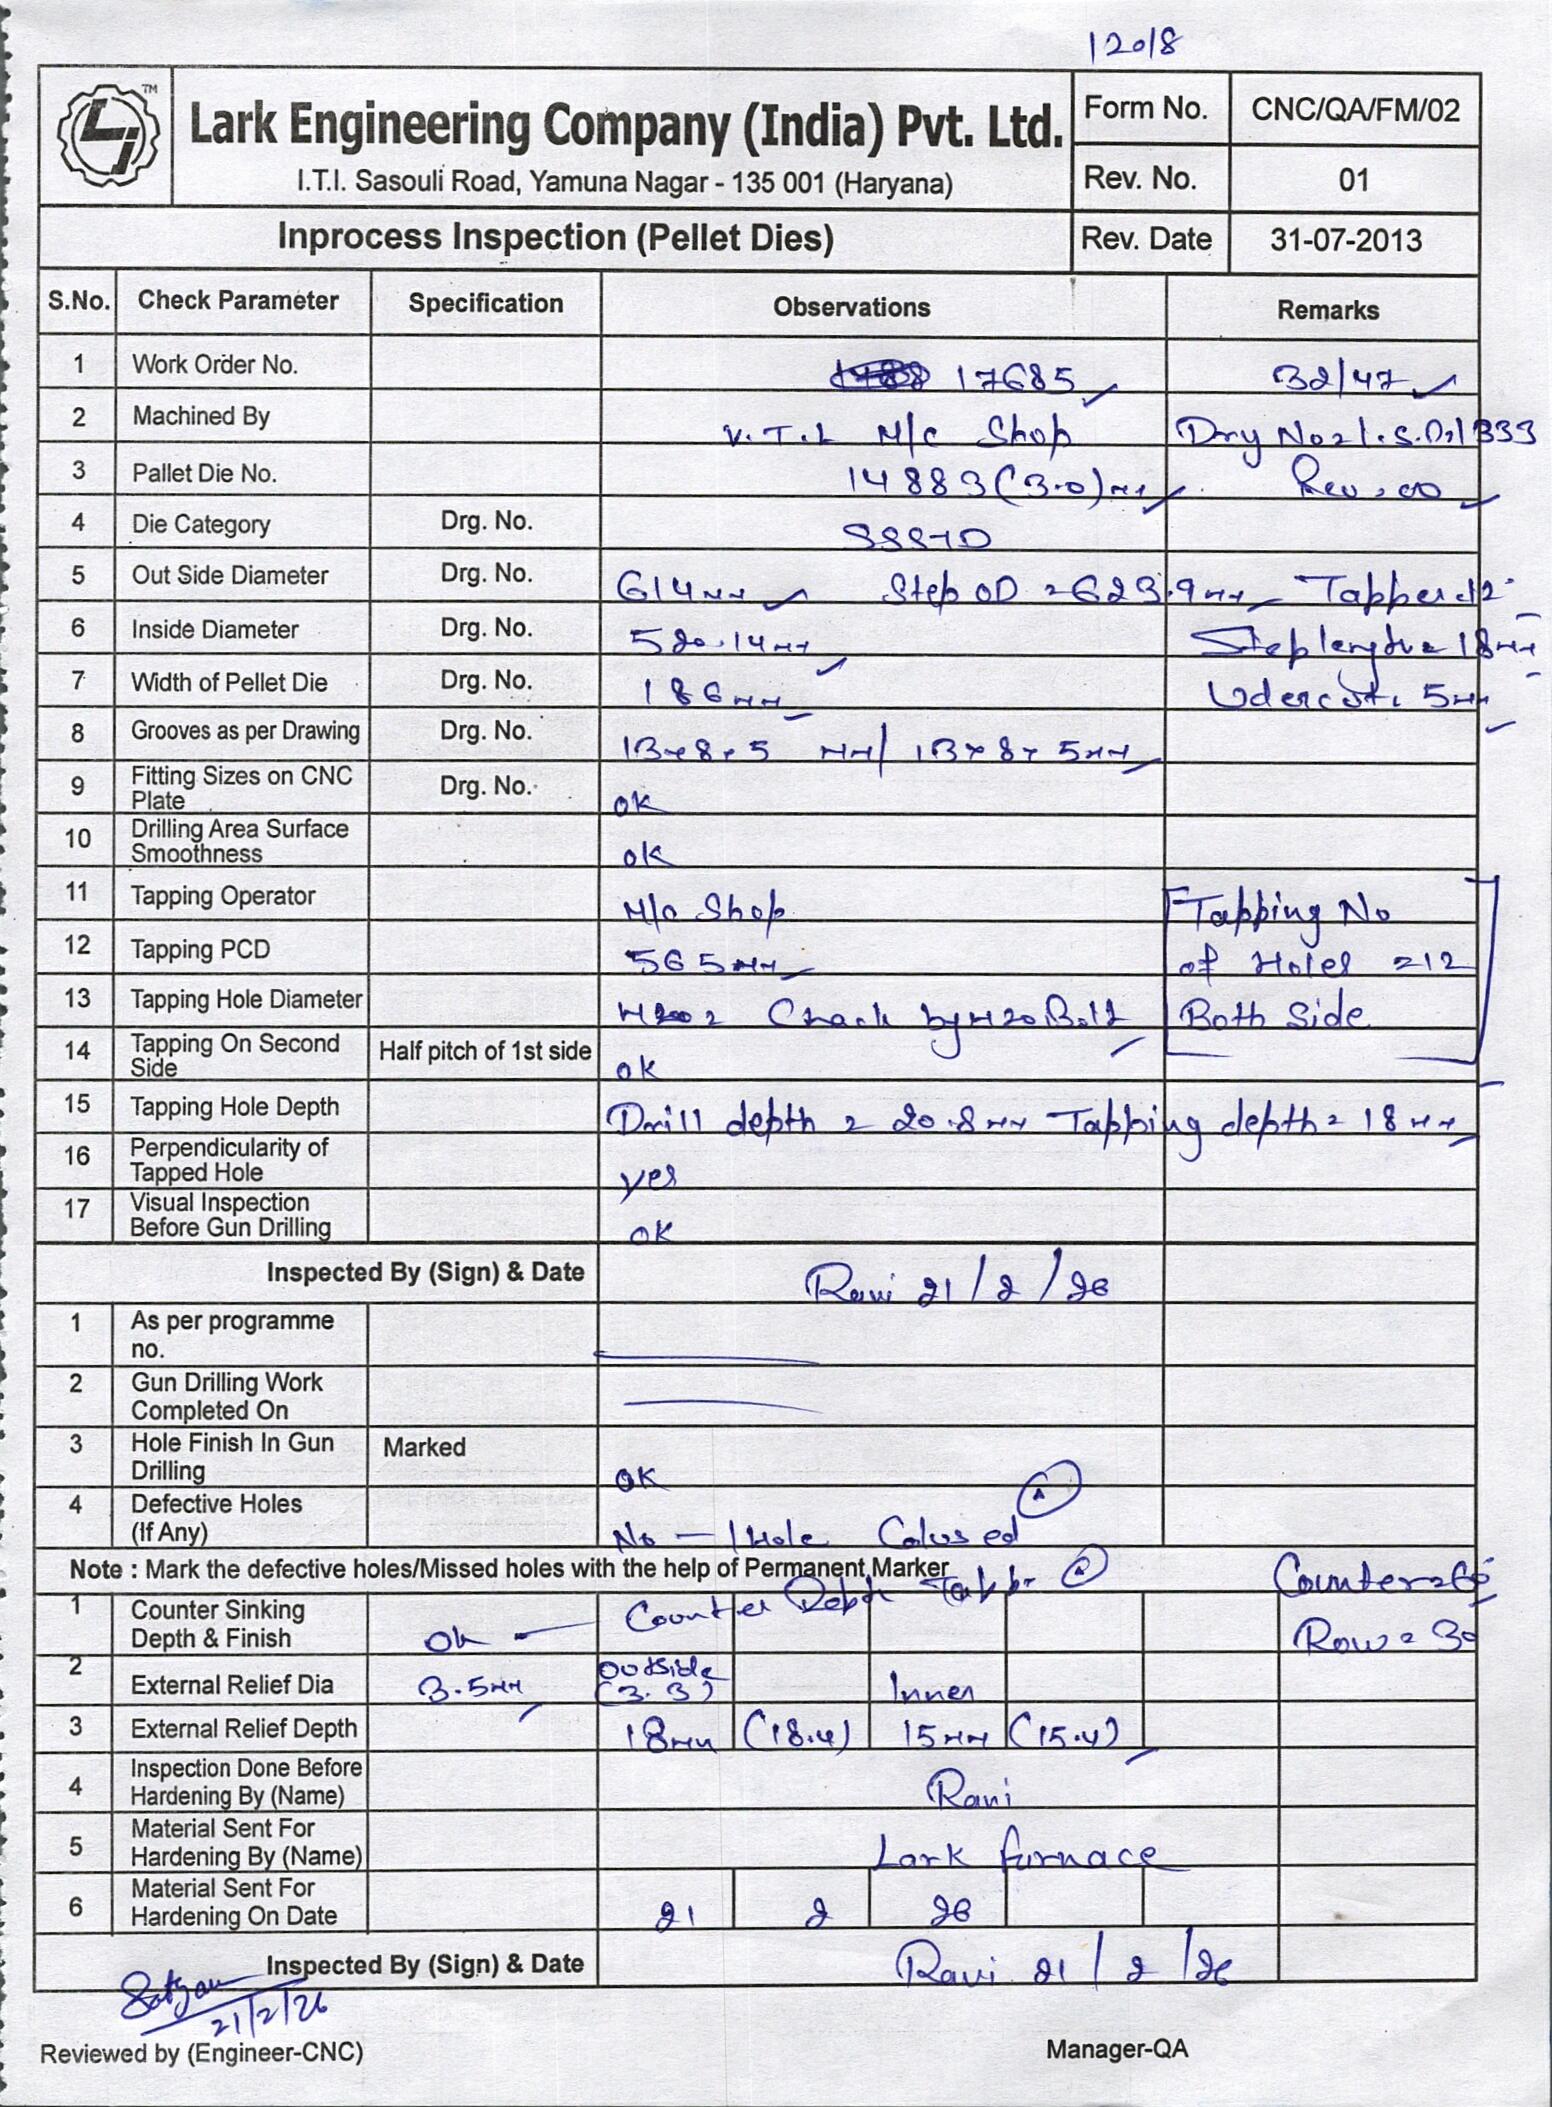 12018
TM
Lark Engineering Company (India) Pvt. Ltd.
I.T.I. Sasouli Road, Yamuna Nagar - 135 001 (Haryana)
Form No. CNC/QA/FM/02
Rev. No. 01
Inprocess Inspection (Pellet Dies) Rev. Date 31-07-2013
S.No. Check Parameter Specification Observations Remarks
1 Work Order No. 17685 32/47
2 Machined By V.T.L M/C Shop Dry No=L.S.D.1333
3 Pallet Die No. 14883(3.0)mm Rev.00
4 Die Category Drg. No.
5 Out Side Diameter Drg. No. 614mm Step OD = 623.9mm Tapper 12°
6 Inside Diameter Drg. No. 520.14mm Step length = 18mm
7 Width of Pellet Die Drg. No. 186mm Udercut. 5mm
8 Grooves as per Drawing Drg. No. 13x8x5 mm/13x8x5mm
9 Fitting Sizes on CNC Plate Drg. No. ok
10 Drilling Area Surface Smoothness ok
11 Tapping Operator M/C Shop Tapping No
12 Tapping PCD 565mm of Holes =12
13 Tapping Hole Diameter M20 = Chack by M20 Bolt Both Side
14 Tapping On Second Side Half pitch of 1st side ok
15 Tapping Hole Depth Drill depth = 20.8mm Tapping depth = 18mm
16 Perpendicularity of Tapped Hole yes
17 Visual Inspection Before Gun Drilling OK
Inspected By (Sign) & Date Ravi 21/2/26
1 As per programme no.
2 Gun Drilling Work Completed On
3 Hole Finish In Gun Drilling Marked OK
4 Defective Holes (If Any) No — 1 Hole Colused A
Note : Mark the defective holes/Missed holes with the help of Permanent Marker
1 Counter Sinking Depth & Finish Ok Counter Depth Tapper Row = 30
2 External Relief Dia 3.5mm Outside (3.3) Inner
3 External Relief Depth 18mm (18.4) 15mm (15.4)
4 Inspection Done Before Hardening By (Name) Ravi
5 Material Sent For Hardening By (Name) Lark furnace
6 Material Sent For Hardening On Date 21 2 26
Inspected By (Sign) & Date Ravi 21/2/26
Satyam
21/2/26
Reviewed by (Engineer-CNC) Manager-QA